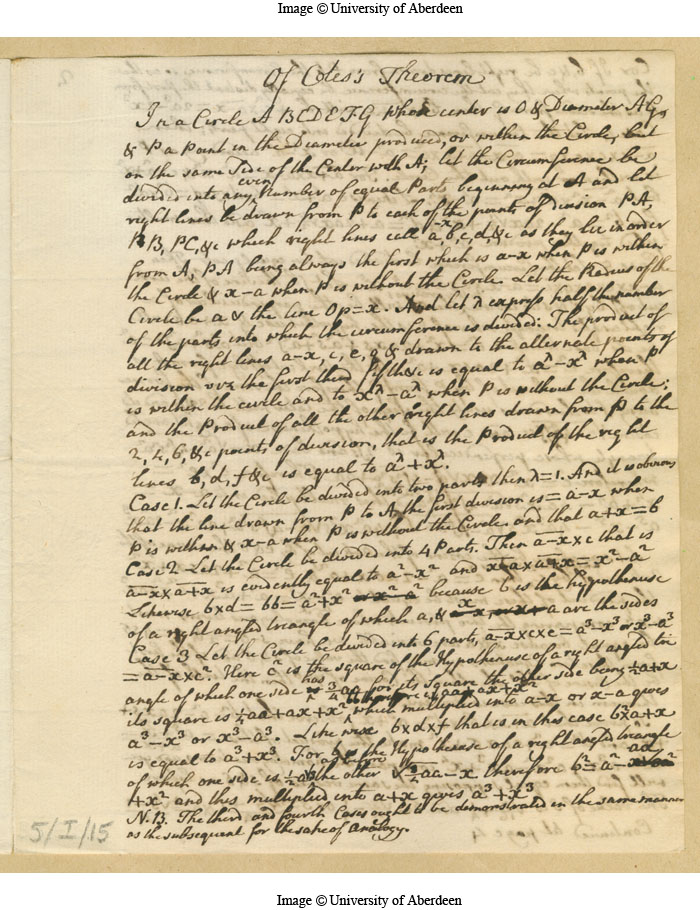 Image © University of Aberdeen
Of Cotes's Theorem
In a Circle A BCDEFG whose center is O & Diameter AG,
& P a point in the Diameter produced, or within the Circle, but
on the same Side of the Center with A; let the Circumference be
divided into any even Number of equal Parts beginning at A and let
right lines be drawn from P to each of the points of division PA,
PB, PC, &c which right lines call a-x, b, c, d, &c as they lie in order
from A, PA being always the first which is a-x when P is within
the Circle & x-a when P is without the Circle. Let the Radius of the
Circle be a & the line Op=x. And let λ express half the number
of the parts into which the circumference is divided: The product of
all the right lines a-x, c, e, g & drawn to the alternate points of
division viz the first third fifth &c is equal to a^λ-x^λ when P
is within the circle and to x^λ-a^λ when P is without the Circle;
and the Product of all the other right lines drawn from P to the
2, 4, 6, &c points of division, that is the Product of the right
lines b, d, f &c is equal to a^λ+x^λ.
Case 1. Let the Circle be divided into two parts, then λ=1. And it is obvious
that the line drawn from P to A the first division is = a-x when
P is within & x-a when P is without the Circle. and that a+x=b
Case 2 Let the Circle be divided into 4 Parts. Then a-x×c that is
a-x×a+x is evidently equal to a²-x² and x-a×a+x=x²-a²
Likewise b×d=bb=a²+x² because b is the hypothenuse
of a right angled triangle of which a, & x are the sides
Case 3 Let the Circle be divided into 6 parts, a-x×c×e=a³-x³ or x³-a³
=a-x×c². Here c² is the square of the Hypothenuse of a right angled tri
angle of which one side has ¾aa for its square the other side being ½a+x
its square is ¼aa+ax+x² therefore c²=aa+ax+x² which multiplied into a-x or x-a gives
a³-x³ or x³-a³. Likewise b×d×f that is in this case b²×a+x
is equal to a³+x³. For b is the Hypothenuse of a right angled triangle
of which one side is as before the other therefore b²=a²-ax
+x² and this multiplied into a+x gives a³+x³
N.B. The third and fourth Cases ought to be demonstrated in the same manner
as the subsequent for the sake of analogy.
5/I/15
Image © University of Aberdeen